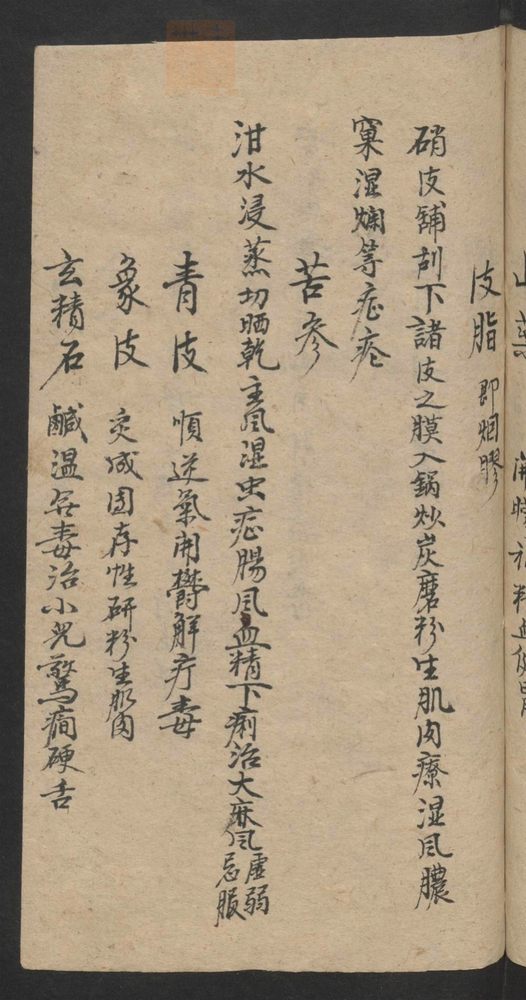 皮脂 即烟膠
硝皮舖刮下諸皮之膜入鍋炒炭磨粉生肌肉療湿風膿
窠湿爛等症疮
苦参
泔水浸蒸切晒乾主風湿虫症腸風血精下痢治大麻風虛弱忌服
青皮 順逆氣開鬱解疔毒
象皮 炙成団存性研粉生肌肉
玄精石 鹹温無毒治小児驚癇硬舌